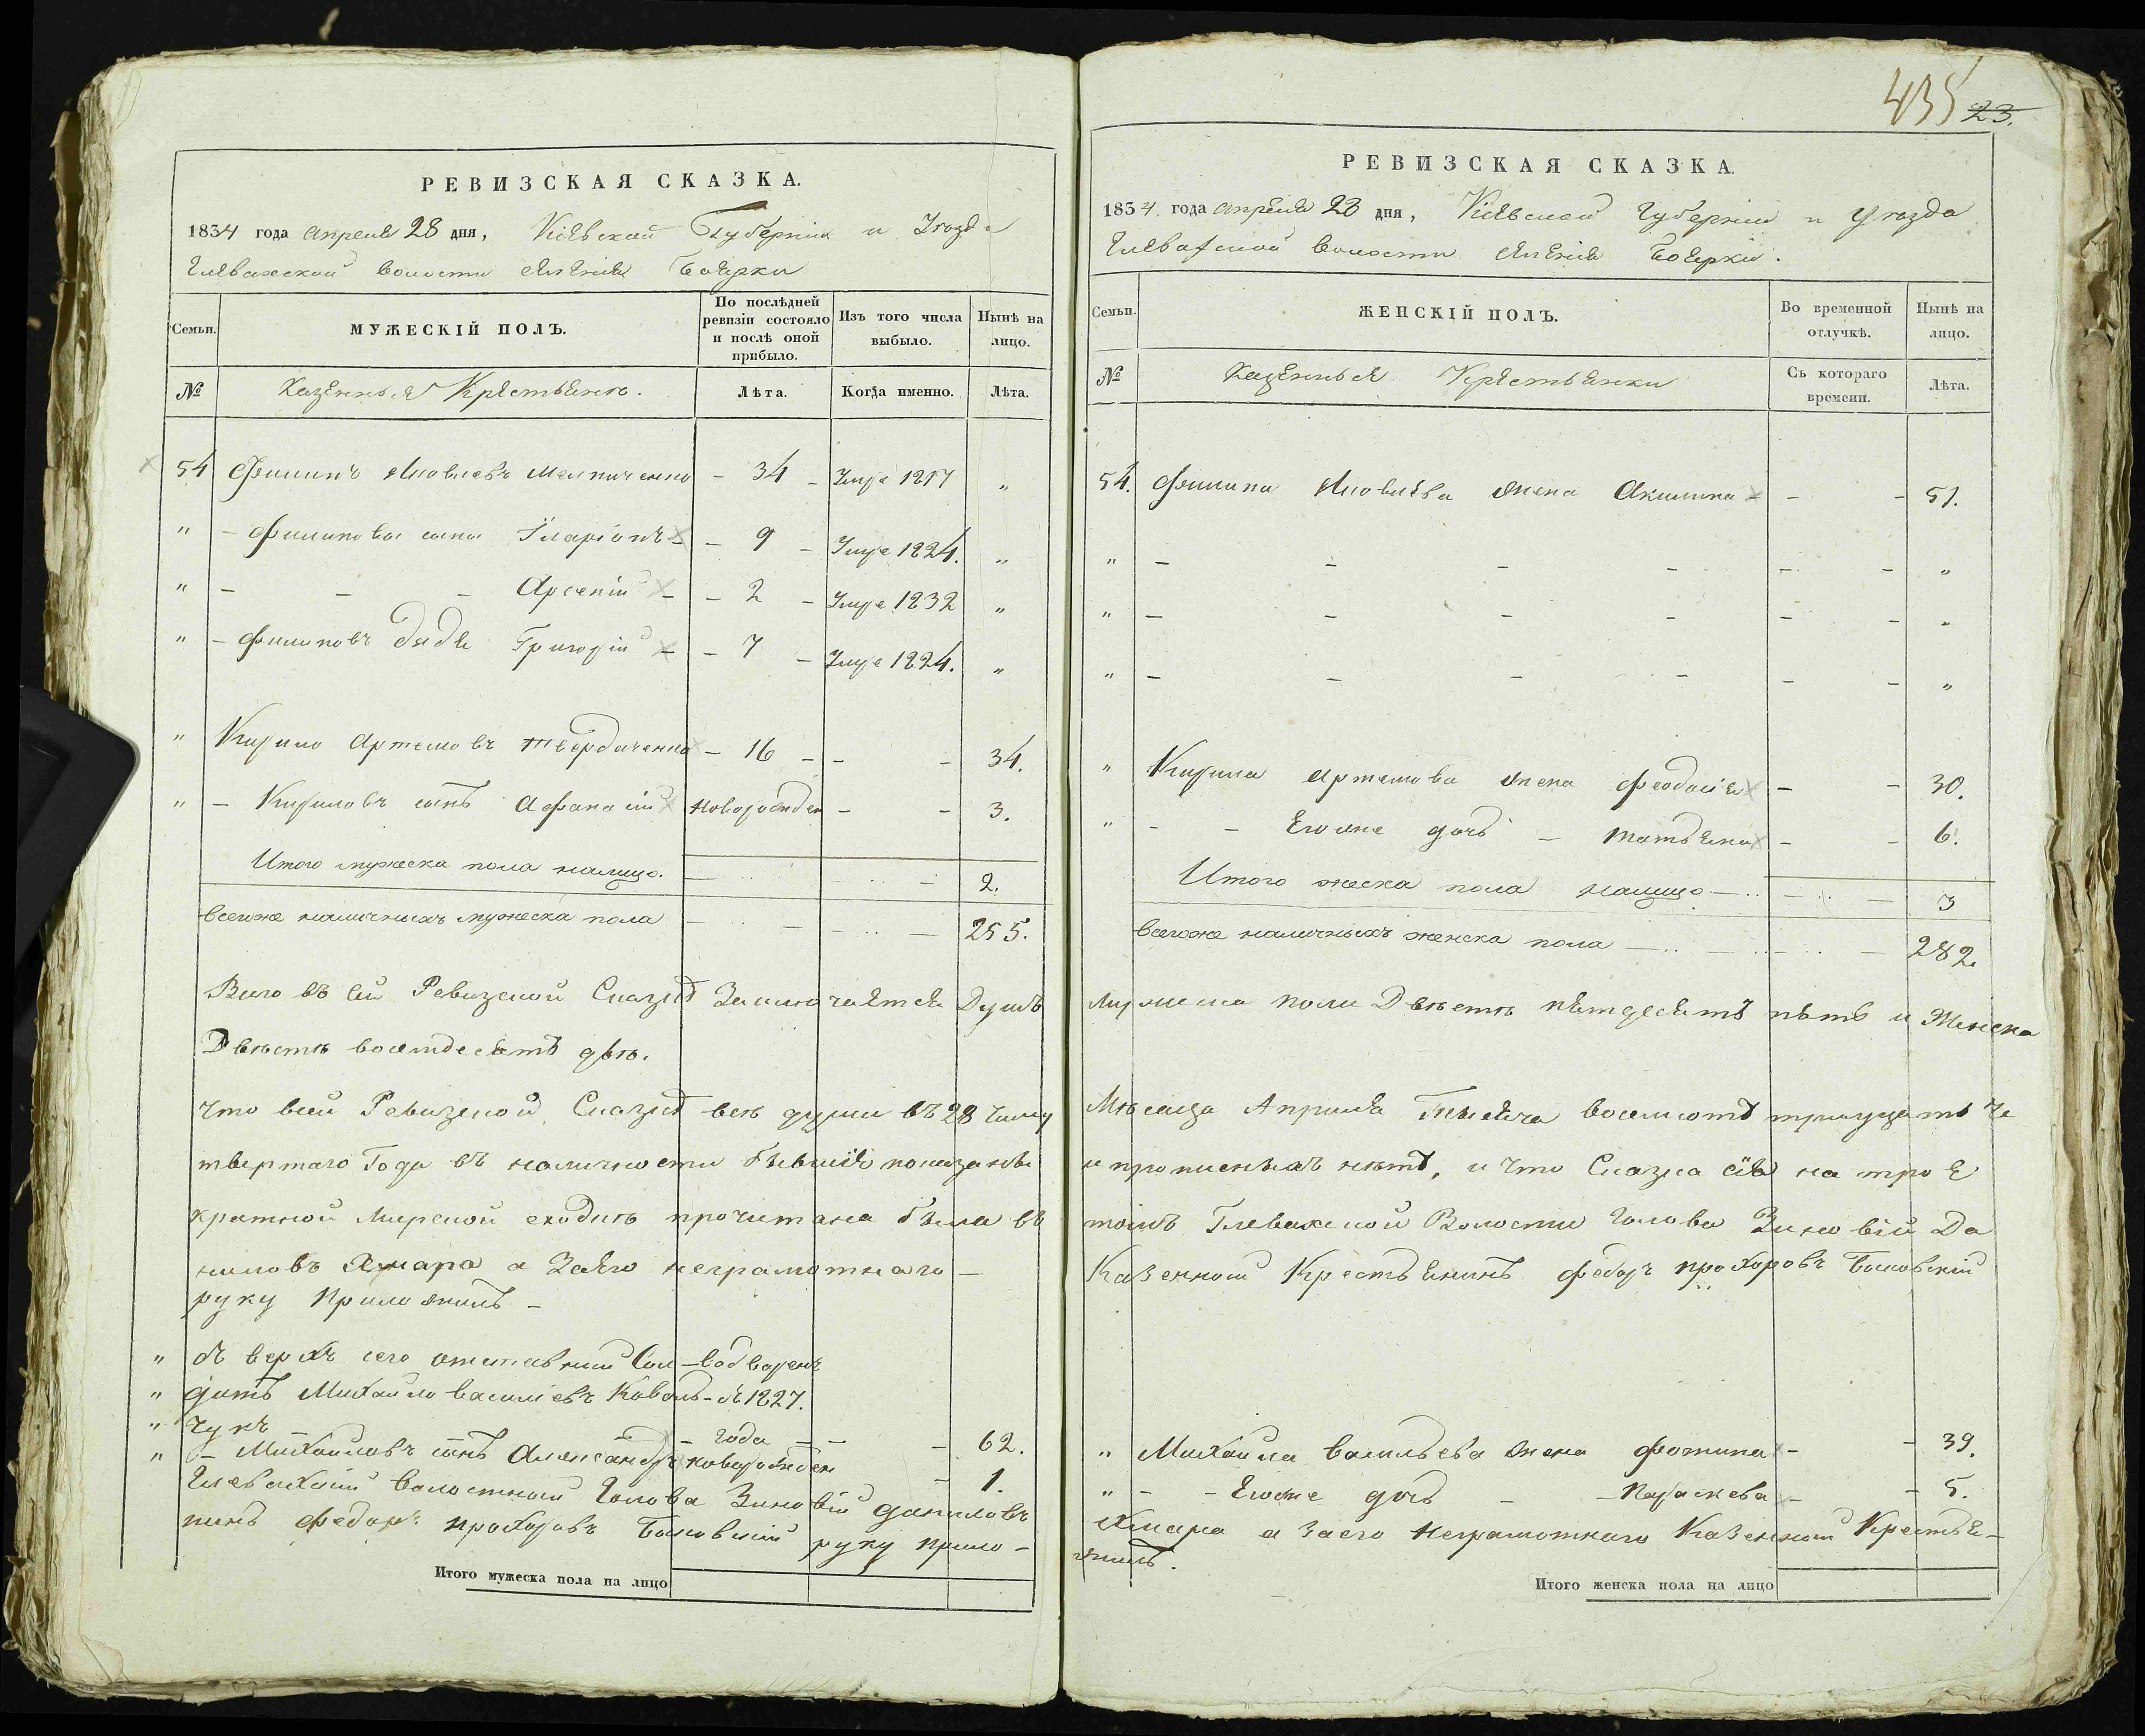 435 23.
РЕВИЗСКАЯ СКАЗКА.
1834 года апреля 28 дня, Кіевской Губерніи и Уезда
Глевахской волости селенія Боярки
Семьи. МУЖЕСКІЙ ПОЛЪ. По послѣдней ревизіи состояло и послѣ оной прибыло. Изъ того числа выбыло. Нынѣ на лицо.
№ Казенные Крестьяне. Лѣта. Когда именно. Лѣта.
54 Филипъ Яковлевъ - 34 - Умре 1817 „
„ - Филиповы сыны Іларіонъ - - 9 - Умре 1824. „
„ - - - Арсеній - - 2 - Умре 1832 „
„ - Филиповъ дядя Григорій - - 7 - Умре 1824. „
„ Кирило Артемовъ Твердаченко - 16 - - - 34.
„ - Кириловъ сынъ Афанасій новорожден - - 3.
Итого мужеска пола налицо. - - 2.
всегоже наличныхъ мужеска пола - - - - 255.
Всего въ сей Ревизской Сказке Заключается Душъ
Двѣсти восемдесятъ две.
Что всей Ревизской Сказке всѣ души въ 28 число
твертаго Года въ наличности бывшіе показаны
кратной Мирской сходкѣ прочитана была въ
ниловъ Хмара а Заего неграмотнаго -
руку Приложилъ -
„ Въ верхъ сего отставный Сол - водворенъ
„ датъ Михайло василіевъ Коваль - въ 1827.
„ чукъ - года - - - 62.
„ - Михаиловъ сынъ Александръ новорожден - 1.
Глевахскій волостной Голова Зиновій даниловъ
нинъ федоръ прохоровъ руку прило -
Итого мужеска пола на лицо
РЕВИЗСКАЯ СКАЗКА.
1834. года апреля 28 дня, Кіевской Губерніи и Уезда
Глевахской волости селенія Боярки.
Семьи. ЖЕНСКІЙ ПОЛЪ. Во временной отлучкѣ. Нынѣ на лицо.
№ Казенные Крестьянки Съ котораго времени. Лѣта.
54. Филипа Яковлева жена Акилина - - - 51.
„ - - - - - - „
„ - - - - - - „
„ - - - - - - „
„ Кирила Артемова жена феодосія - - 30.
„ - - Егоже дочь - татьяна - - 6.
Итого женска пола налицо - - - 3
всегоже наличныхъ женска пола - - - - 282.
Мужеска пола Двѣсти пятдесятъ пять и Женска
Мѣсяца Апреля Тысяча восемсотъ тридцать че
и прописныхъ нѣтъ, и что Сказка сія на трое
томъ Глевахской Волости Голова Зиновій Да
Казенной Крестьянинъ федоръ прохоровъ
„ Михайла васильева жена фотина - - 39.
„ - - Егоже дочь - - Параскева - - 5.
Хмара а заего неграмотнаго Казенной Крестья -
жилъ.
Итого женска пола на лицо